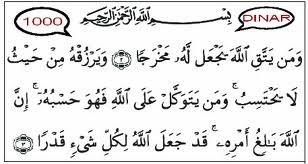 1000 بِسْمِ اللَّهِ الرَّحْمَٰنِ الرَّحِيمِ DINAR
وَمَن يَتَّقِ ٱللَّهَ يَجْعَل لَّهُۥ مَخْرَجًا ﴿٢﴾ وَيَرْزُقْهُ مِنْ حَيْثُ
لَا يَحْتَسِبُ ۚ وَمَن يَتَوَكَّلْ عَلَى ٱللَّهِ فَهُوَ حَسْبُهُۥٓ ۚ إِنَّ
ٱللَّهَ بَـٰلِغُ أَمْرِهِۦ ۚ قَدْ جَعَلَ ٱللَّهُ لِكُلِّ شَىْءٍ قَدْرًا ﴿٣﴾